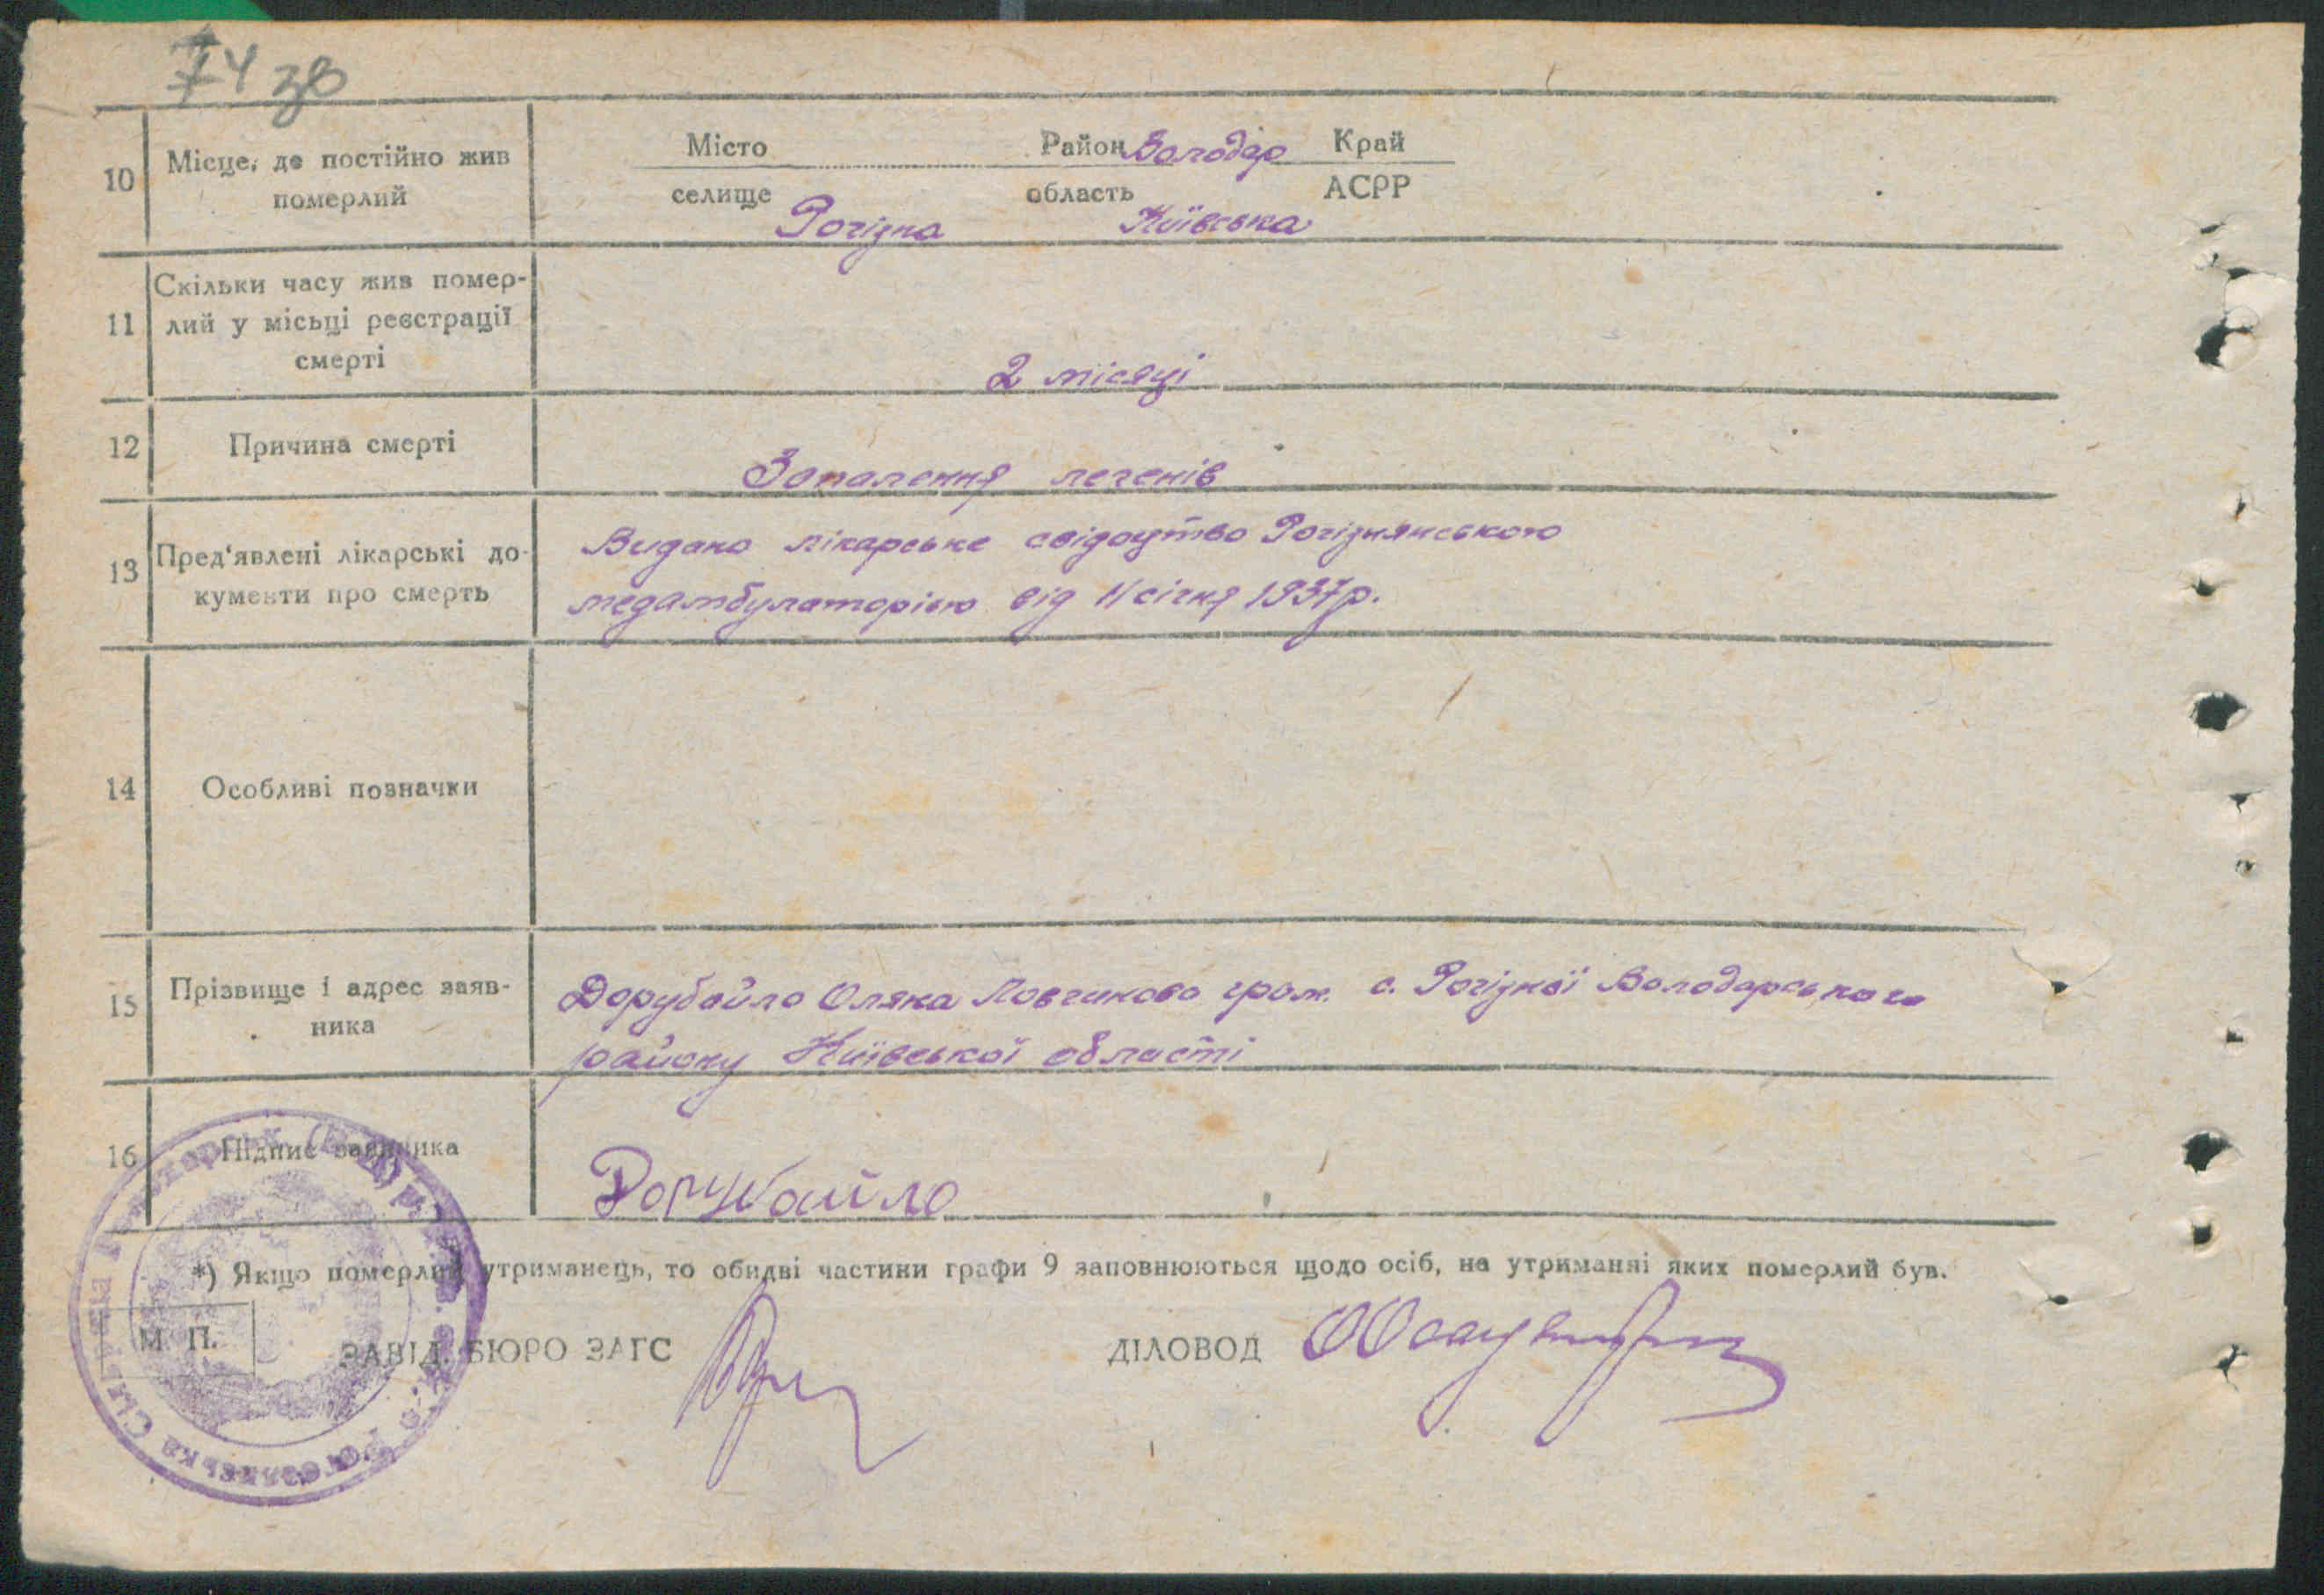 74 зв
10 Місце, де постійно жив померлий
Місто Район Володар Край
селище Рогізна область Київська АСРР
11 Скільки часу жив помер-
лий у місьці реєстрації
смерті
2 місяці
12 Причина смерті Запалення легенів
13 Пред'явлені лікарські до-
кументи про смерть
Видано лікарське свідоцтво Рогізнянського
медамбулаторією від 11 січня 1937р.
14 Особливі позначки
15 Прізвище і адрес заяв-
ника
Дорубайло Оляна гром. с. Рогізної Володарського
району Київської області
16 Підпис заявника Дорубайло
*) Якщо померлий утриманець, то обидві частини графи 9 заповнюються щодо осіб, на утриманні яких померлий був.
М. П. ЗАВІД. БЮРО ЗАГС ДІЛОВОД